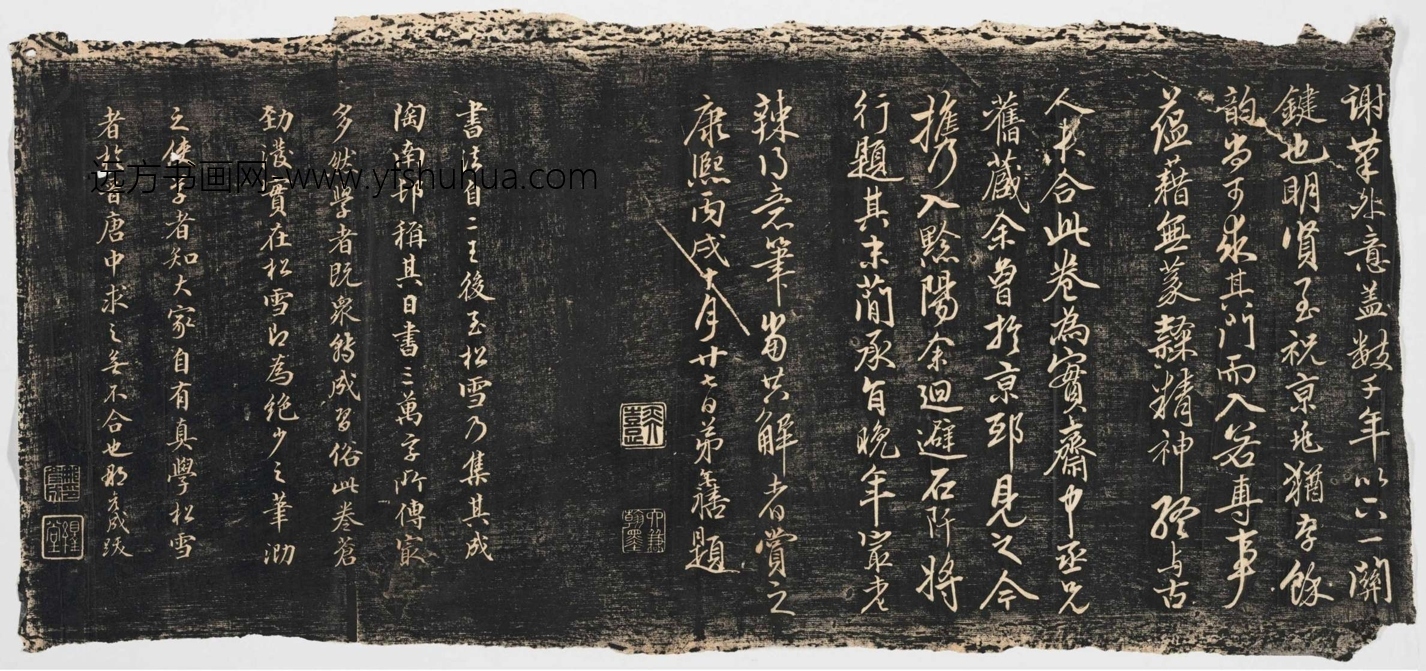 谢草外意盖数千年以六一關
鍵也明賢至祝京兆猶存餘
韵尚可求其門而入若專事
蕴藉無蒙隸精神終与古
人未合此卷為實齋中丞兄
舊蔵余曾於京邸見之今
攜乃入黔陽余迴避石阡将
行題其末蘭承旨晚年最老
辣得意筆當共解者賞之
康熙丙戌十月廿七日弟燾題
書法自二王後至松雪乃集其成
陶南邨稱其日書三萬字所傳最
多然學者既衆轉成習俗此卷蒼
勁濃實在松雪即為絶少之筆泐
之使學者知大家自有真學松雪
者於晋唐中求之無不合也
远方书画网-www.yfshuhua.com